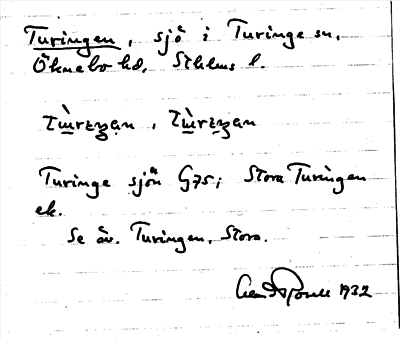 Turingen, sjö i Turinge sn,
Öknebo hd, Sthlms l.
Turinge sjön G75; Stora Turingen
ek.
Se äv. Turingen, Stora.
1932